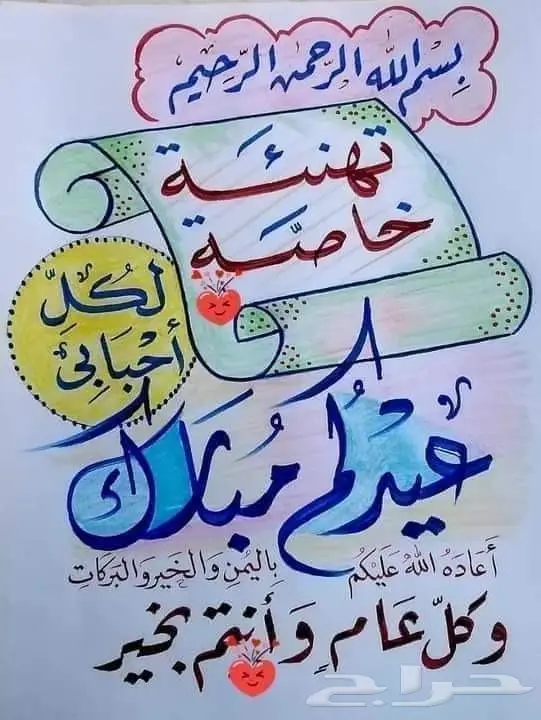 بِسْمِ اللّٰهِ الرَّحْمٰنِ الرَّحِيْمِ
تهنئَــة
خاصَّــة
لِكُلِّ
أَحْبَابِيْ
عِيْدُكُمْ مُبَارَك
أَعَادَهُ اللّٰهُ عَلَيْكُم بِاليُمْنِ وَالخَيْرِ وَالبَرَكَاتِ
وَكلّ عَامٍ وَأَنتم بخير
حراج